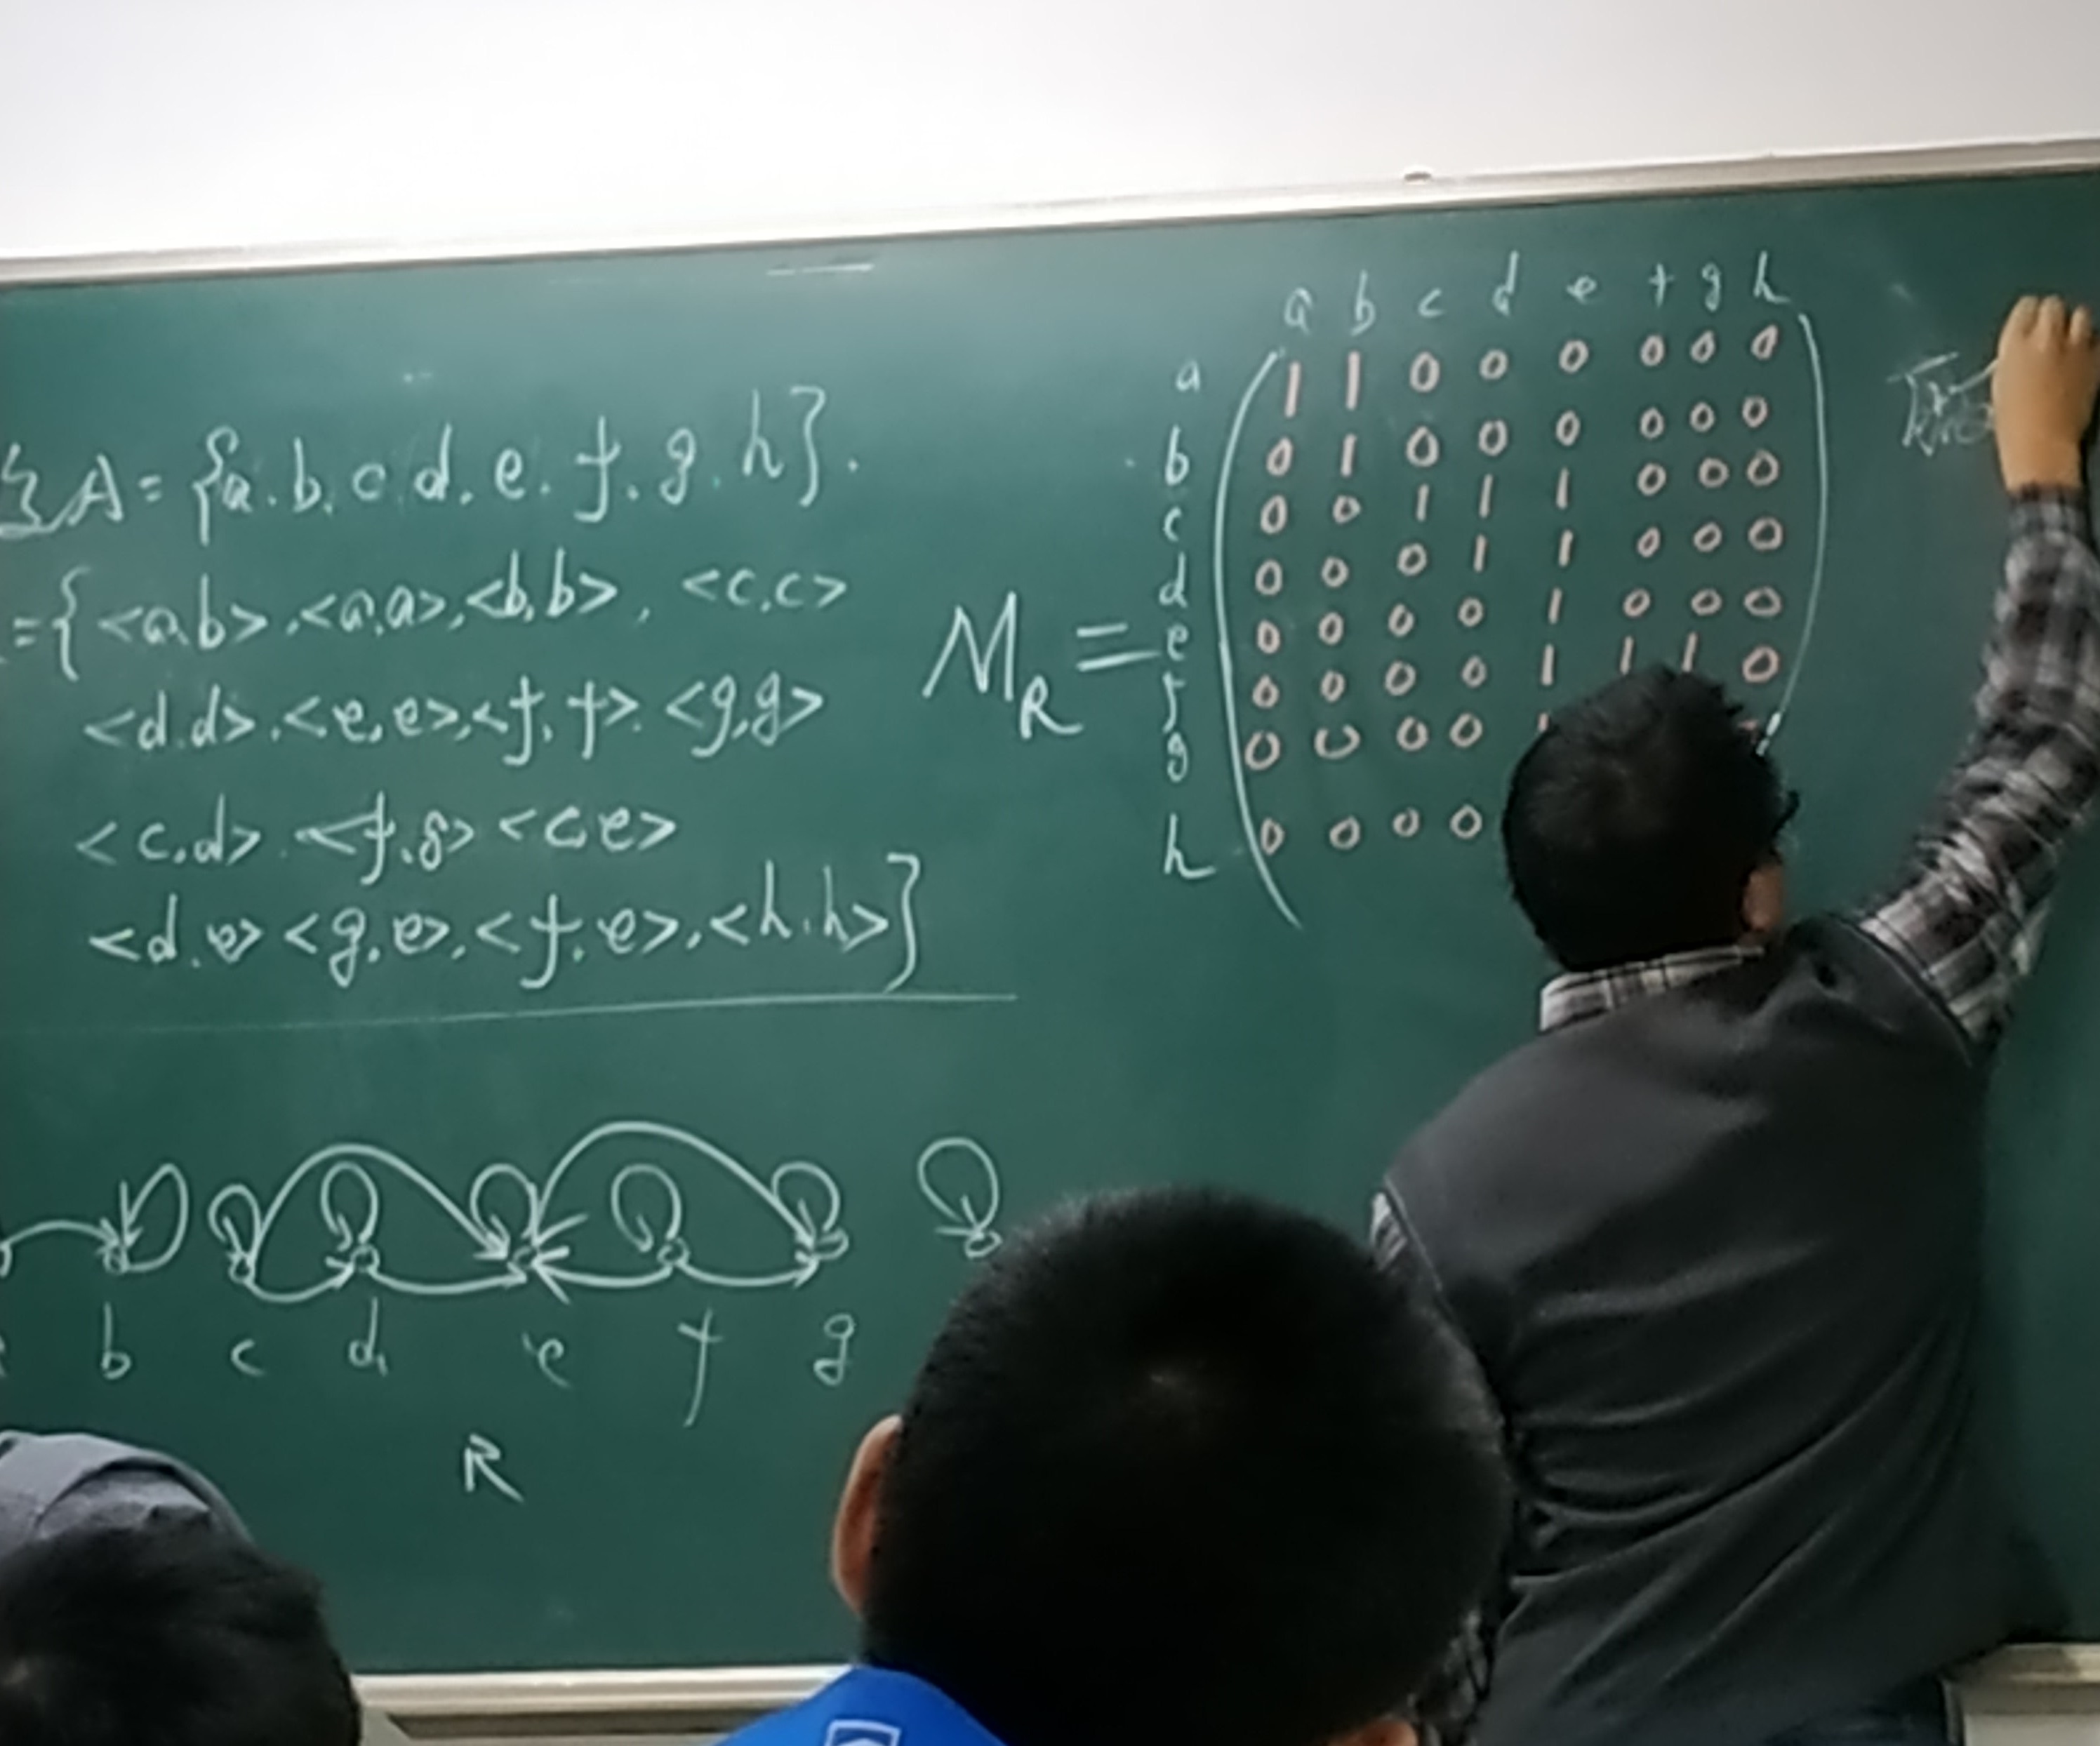 A={a.b.c.d.e.f.g.h}.
={<a,b>,<a,a>,<b,b>, <c,c>
<d.d>,<e,e>,<f,f>.<g,g>
<c,d>.<f.g><c,e>
<d.e><g.e>,<f.e>,<h.h>}
b c d e f g
R
M_R=
a b c d e f g h
a 1 1 0 0 0 0 0 0
b 0 1 0 0 0 0 0 0
c 0 0 1 1 1 0 0 0
d 0 0 0 1 1 0 0 0
e 0 0 0 0 1 0 0 0
f 0 0 0 0 1 1 1 0
g 0 0 0 0
h 0 0 0 0